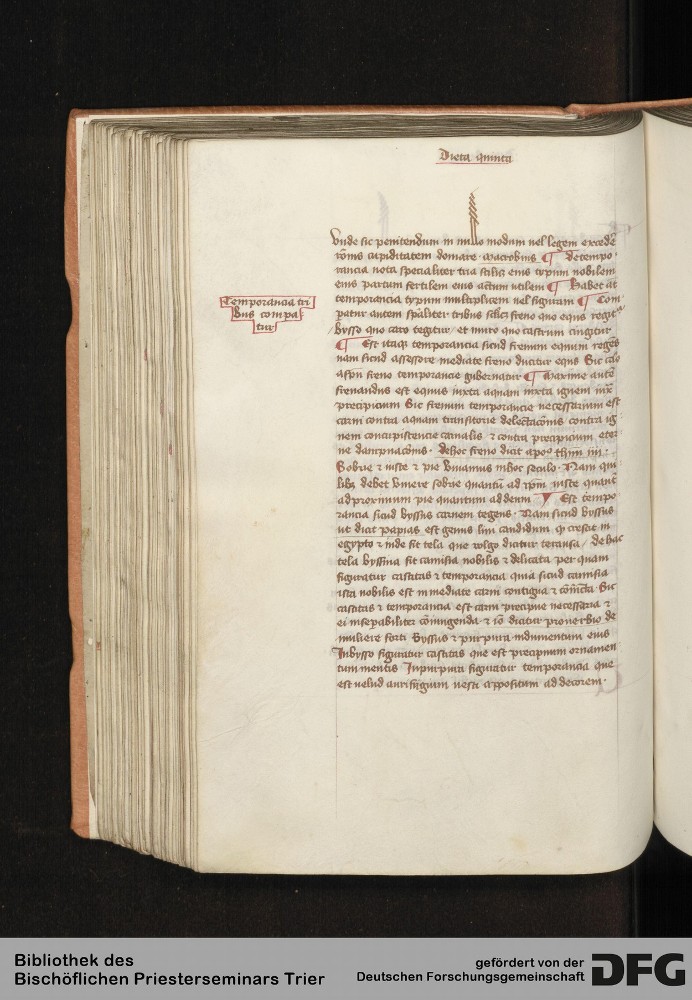 Dieta quinta
Vnde sic penitendum in nullo modum uel legem excede
rōnis cupiditatem domare. Macrobius ¶ de tempo
rancia nota specialiter tria scilicȝ eius typum nobilem
eius partum fertilem eius actum utilem ¶ Habet at
temporancia typum multiplicem uel figuram ¶ Com
patur autem spūaliter tribus scilicȝ freno quo equs regit͛
bysso quo caro tegitur et muro quo castrum cingitur
Temporancia tri
bus compa
tur
¶ Est itaqȝ temporancia sicud frenum equum regēs
nam sicud assessore mediate freno ducitur equs Sic caro
freno temporancie gubernatur ¶ Maxime autē
frenandus est equus iuxta aquam iuxta ignem iux̄
precipicium Sic frenum temporancie necessarium est
carni contra aquam transitorie delectacōnis contra ig
nem concupiscencie carnalis ⁊ contra precipicium eter
ne dampnacōnis. de hoc freno dicit apoꝰ
Sobrie ⁊ iuste ⁊ pie viuamus in hoc seculo. Nam qui
libȝ debet viuere sobrie quantū ad iuste quant̄
ad proximum pie quantum ad deum ¶ Est tempo
rancia sicud byssus carnem tegens. Nam sicud byssus
ut dicit papias est genus lini candidum qͥ crescit in
egypto ⁊ inde fit tela que wlgo dicitur de hac
tela byssina fit camisia nobilis ⁊ delicata per quam
figuratur castitas ⁊ temporancia quia sicud camisia
ista nobilis est inmediate carni contigua ⁊ Sic
castitas ⁊ temporancia est carni precipue necessaria ⁊
ei inseparabiliter coniungenda ⁊ iō dicitur prouerbio de
muliere forti Byssus ⁊ purpura indumentum eius
In bysso figuratur castitas que est precipuum ornamen
tum mentis In purpura figuratur temporancia que
est velud aurifrigium uesti appositum ad decorem.
Bibliothek des
Bischöflichen Priesterseminars Trier
gefördert von der
Deutschen Forschungsgemeinschaft
DFG